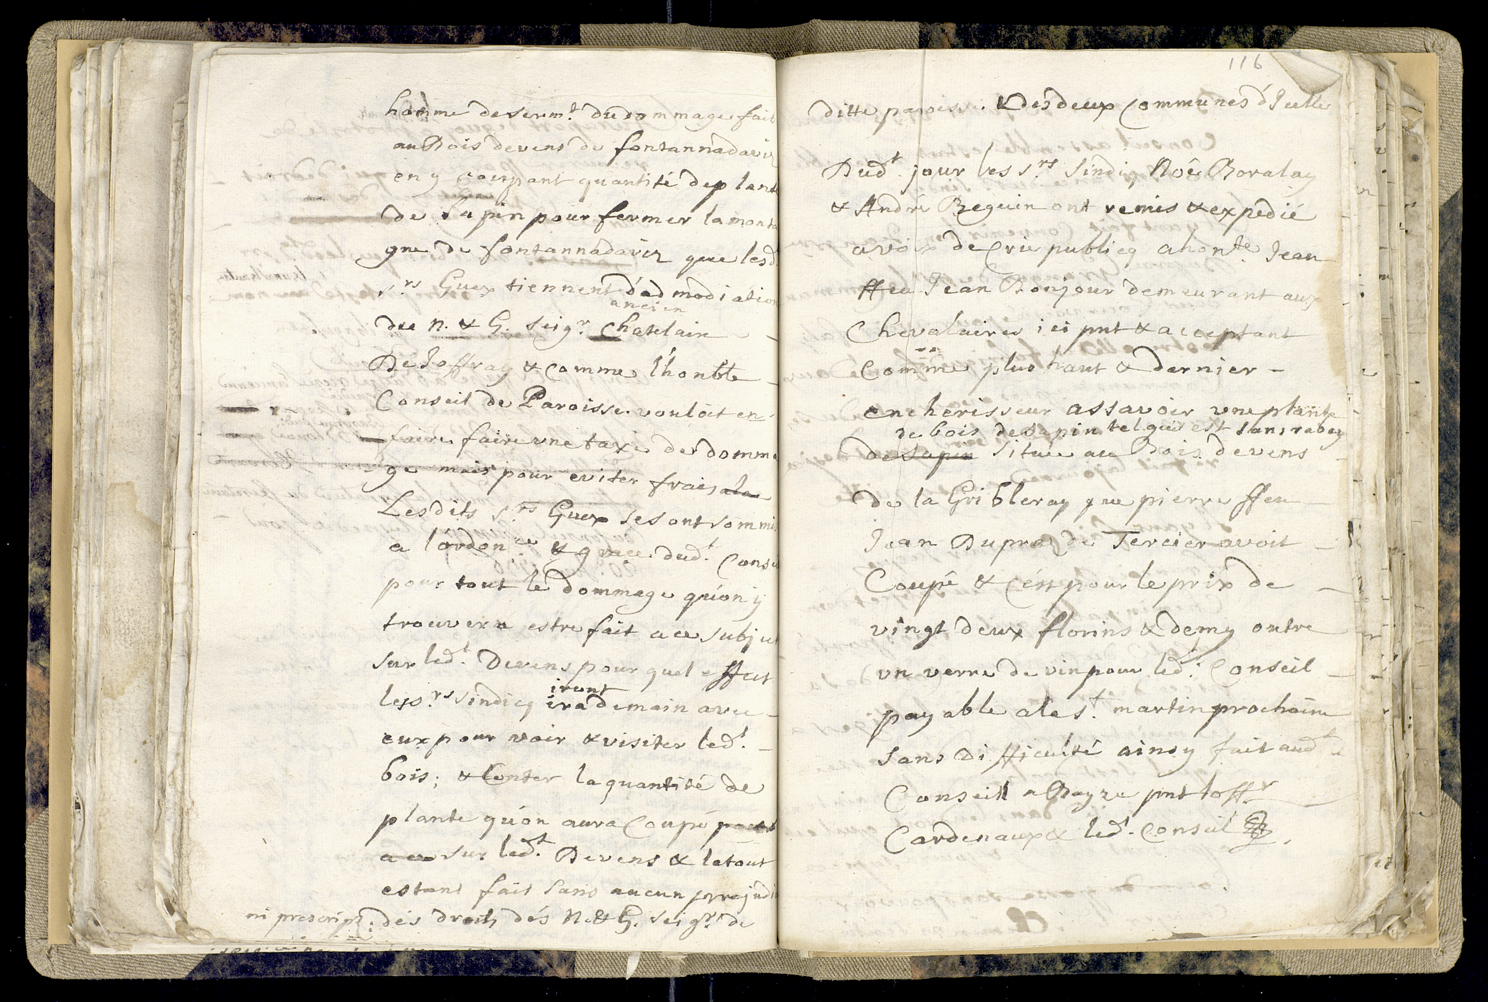 homme de serm.t du dommage fait
au Bois devens de fontannadaviz
en y coupant quantité de plant
de Sapin pour fermer la monta
gne de fontannadaviz que lesd
s.rs Guex tiennent dad modiation
ancien
du N. & G. Seig.r Chatelain
De Joffrey & comme l'honble
Conseil de Paroisse vouloit en
faire faire une taxe de domma
ge mais pour eviter frais
Lesdits s.rs Guex se sont soummis
a l'ordon.ce & grace dud.t Conse
pour tout le dommage qu'on y
trouvera estre fait a ce subjet
sur led.t Devens pour quel effect
les s.rs Sindicq iront demain avec
eux pour voir & visiter led.t
bois; & Conter la quantité de
plante qu'on aura Coupe
sur led.t Devens & le tout
estant fait sans aucun prejudi
ni prescript: des droits dés N. & G. Seig.rs de
116
ditte paroisse. & des deux Communes d'Icelle
Dud.t jour les s.rs Sindiq Noé Boralay
& André Reguin ont remis & expedié
a voix de Cris publicq a hon.te Jean
ffeu Jean Bonjour demeurant aux
Chevalaires ici pnt & acceptant
Comme plus haut & dernier
encherisseur assavoir une plante
de bois de sapin tel qu'il est sans rabay
de sapin Située au Bois devens
de la Gribleray que pierre ffeu
Jean Dupraz de Tercier avoit
Coupé & c'est pour le prix de
vingt deux florins & demy outre
un verre de vin pour led.t Conseil
payable a la s.t martin prochaine
sans Difficulté ainsy fait aud.t
Conseil a Bayze pnt loff.r
Cardenaux & led.t Conseil